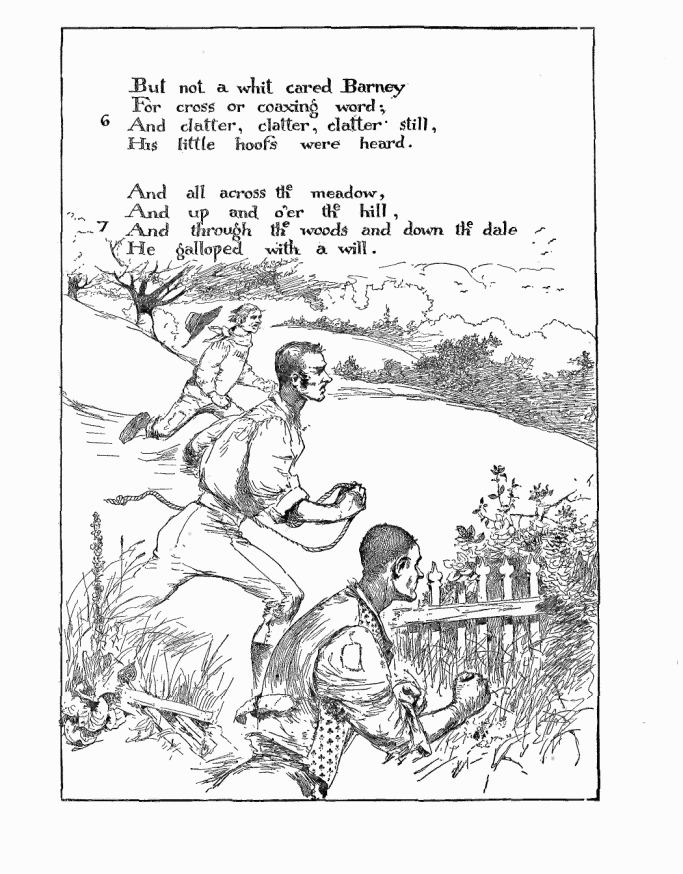 But not a whit cared Barney
For cross or coaxing word;
6 And clatter, clatter, clatter still,
His little hoofs were heard.
And all across the meadow,
And up and o'er the hill,
7 And through the woods and down the dale
He galloped with a will.